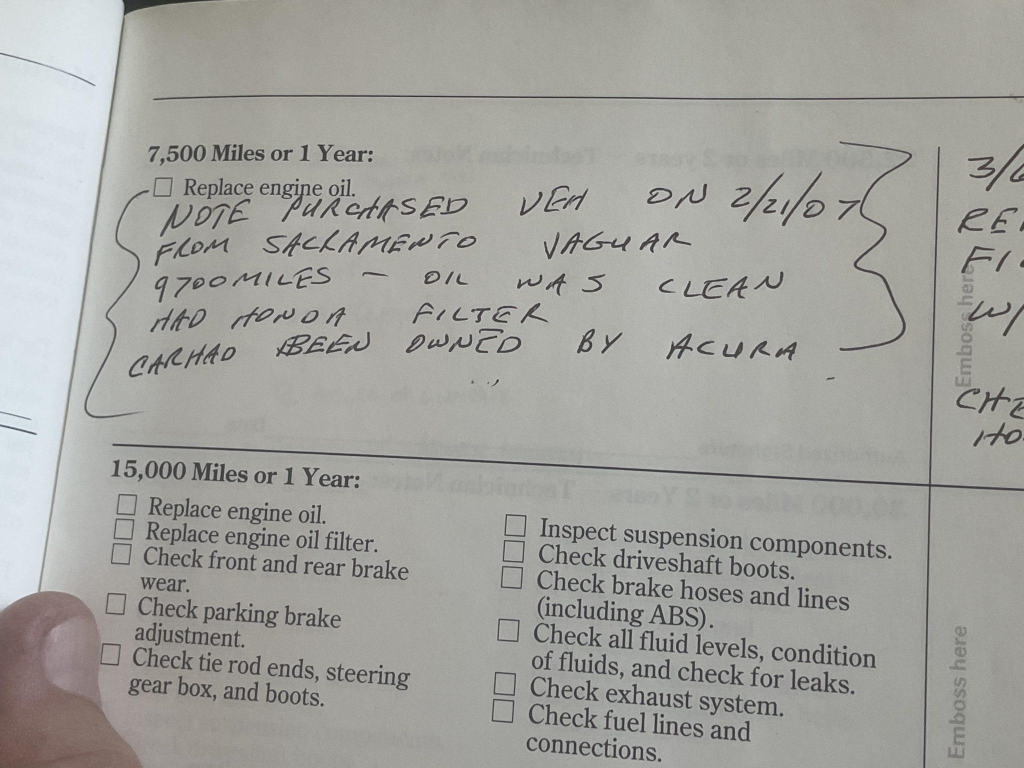 7,500 Miles or 1 Year:
Replace engine oil.
NOTE PURCHASED VEH ON 2/21/07
FROM SACRAMENTO JAGUAR
9700 MILES - OIL WAS CLEAN
HAD HONDA FILTER
CAR HAD BEEN OWNED BY ACURA
3/
RE
FI
W/
CHE
HO
Emboss here
15,000 Miles or 1 Year:
Replace engine oil.
Replace engine oil filter.
Check front and rear brake
wear.
Check parking brake
adjustment.
Check tie rod ends, steering
gear box, and boots.
Inspect suspension components.
Check driveshaft boots.
Check brake hoses and lines
(including ABS).
Check all fluid levels, condition
of fluids, and check for leaks.
Check exhaust system.
Check fuel lines and
connections.
Emboss here